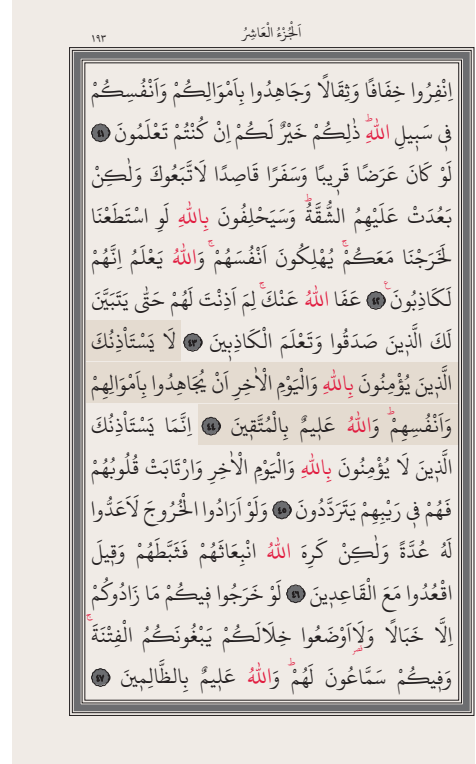 اَلْجُزْءُ الْعَاشِرُ
١٩٣
اِنْفِرُوا خِفَافًا وَثِقَالًا وَجَاهِدُوا بِاَمْوَالِكُمْ وَاَنْفُسِكُمْ
فٖى سَبٖيلِ اللّٰهِؕ ذٰلِكُمْ خَيْرٌ لَكُمْ اِنْ كُنْتُمْ تَعْلَمُونَ ﴿٤١﴾
لَوْ كَانَ عَرَضًا قَرٖيبًا وَسَفَرًا قَاصِدًا لَاتَّبَعُوكَ وَلٰكِنْ
بَعُدَتْ عَلَيْهِمُ الشُّقَّةُؕ وَسَيَحْلِفُونَ بِاللّٰهِ لَوِ اسْتَطَعْنَا
لَخَرَجْنَا مَعَكُمْۚ يُهْلِكُونَ اَنْفُسَهُمْۚ وَاللّٰهُ يَعْلَمُ اِنَّهُمْ
لَكَاذِبُونَ ﴿٤٢﴾ عَفَا اللّٰهُ عَنْكَۚ لِمَ اَذِنْتَ لَهُمْ حَتّٰى يَتَبَيَّنَ
لَكَ الَّذٖينَ صَدَقُوا وَتَعْلَمَ الْكَاذِبٖينَ ﴿٤٣﴾ لَا يَسْتَاْذِنُكَ
الَّذٖينَ يُؤْمِنُونَ بِاللّٰهِ وَالْيَوْمِ الْاٰخِرِ اَنْ يُجَاهِدُوا بِاَمْوَالِهِمْ
وَاَنْفُسِهِمْؕ وَاللّٰهُ عَلٖيمٌ بِالْمُتَّقٖينَ ﴿٤٤﴾ اِنَّمَا يَسْتَاْذِنُكَ
الَّذٖينَ لَا يُؤْمِنُونَ بِاللّٰهِ وَالْيَوْمِ الْاٰخِرِ وَارْتَابَتْ قُلُوبُهُمْ
فَهُمْ فٖى رَيْبِهِمْ يَتَرَدَّدُونَ ﴿٤٥﴾ وَلَوْ اَرَادُوا الْخُرُوجَ لَاَعَدُّوا
لَهُ عُدَّةً وَلٰكِنْ كَرِهَ اللّٰهُ انْبِعَاثَهُمْ فَثَبَّطَهُمْ وَقٖيلَ
اقْعُدُوا مَعَ الْقَاعِدٖينَ ﴿٤٦﴾ لَوْ خَرَجُوا فٖيكُمْ مَا زَادُوكُمْ
اِلَّا خَبَالًا وَلَا۬اَوْضَعُوا خِلَالَكُمْ يَبْغُونَكُمُ الْفِتْنَةَۚ
وَفٖيكُمْ سَمَّاعُونَ لَهُمْؕ وَاللّٰهُ عَلٖيمٌ بِالظَّالِمٖينَ ﴿٤٧﴾